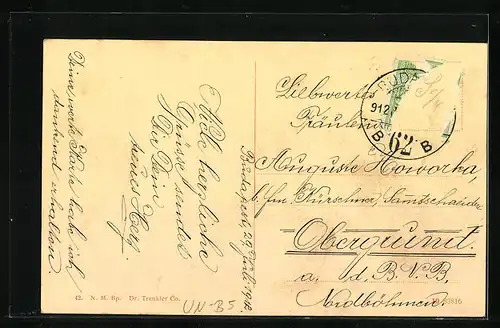 Liebwertes
Fräulein
Auguste Howorka,
b./fm. Kürschner, Samtschneider
Obergrund.
a. d. B.N.B.
Nordböhmen.
Budapest, 29. Juli 1912
Viele herzliche
Grüsse sendet
Dir Dein
treues Herz.
Deine werte Karte habe ich
dankend erhalten.
BUDA
912
B 62 B
42. N. M. Bp. Dr. Trenkler Co.
UN-BS